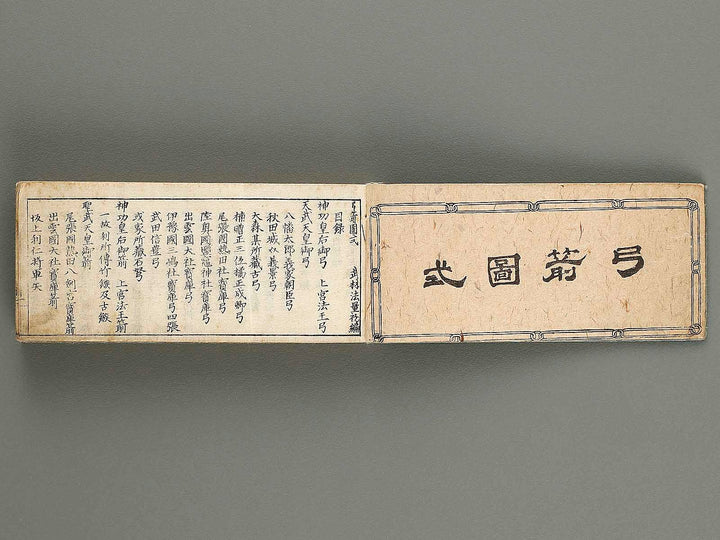 弓箭圖式
弓箭圖式 武林法量私編
目録
神功皇后御弓 上官法王弓
天武天皇御弓
八幡太郎義家朝臣弓
秋田城以義景弓
大森某所藏古弓
楠贈正三位橘正成卿弓
尾張國熱田社寶庫弓
陸奥國塩神社寶庫弓
出雲國大社寶庫弓
伊豫國三嶋社寶庫弓四張
武田信豊弓
或家所藏石弩
神功皇后御箭 上官法王箭
一故利所傳竹鏃及古鏃
聖武天皇御箭
尾張國熱田八例宮寶庫箭
出雲國大社寶庫箭
坂上利仁将軍矢